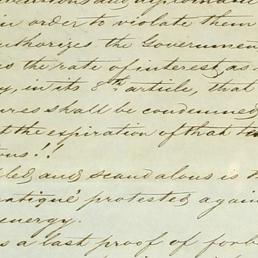 in order to violate them
authorizes the Governmen
s the rate of interest, as
y, in its 8th article, that
ures shall be condemned
t the expiration of that
ous!!
and scandalous is
protested again
energy.
s a last proof of forb